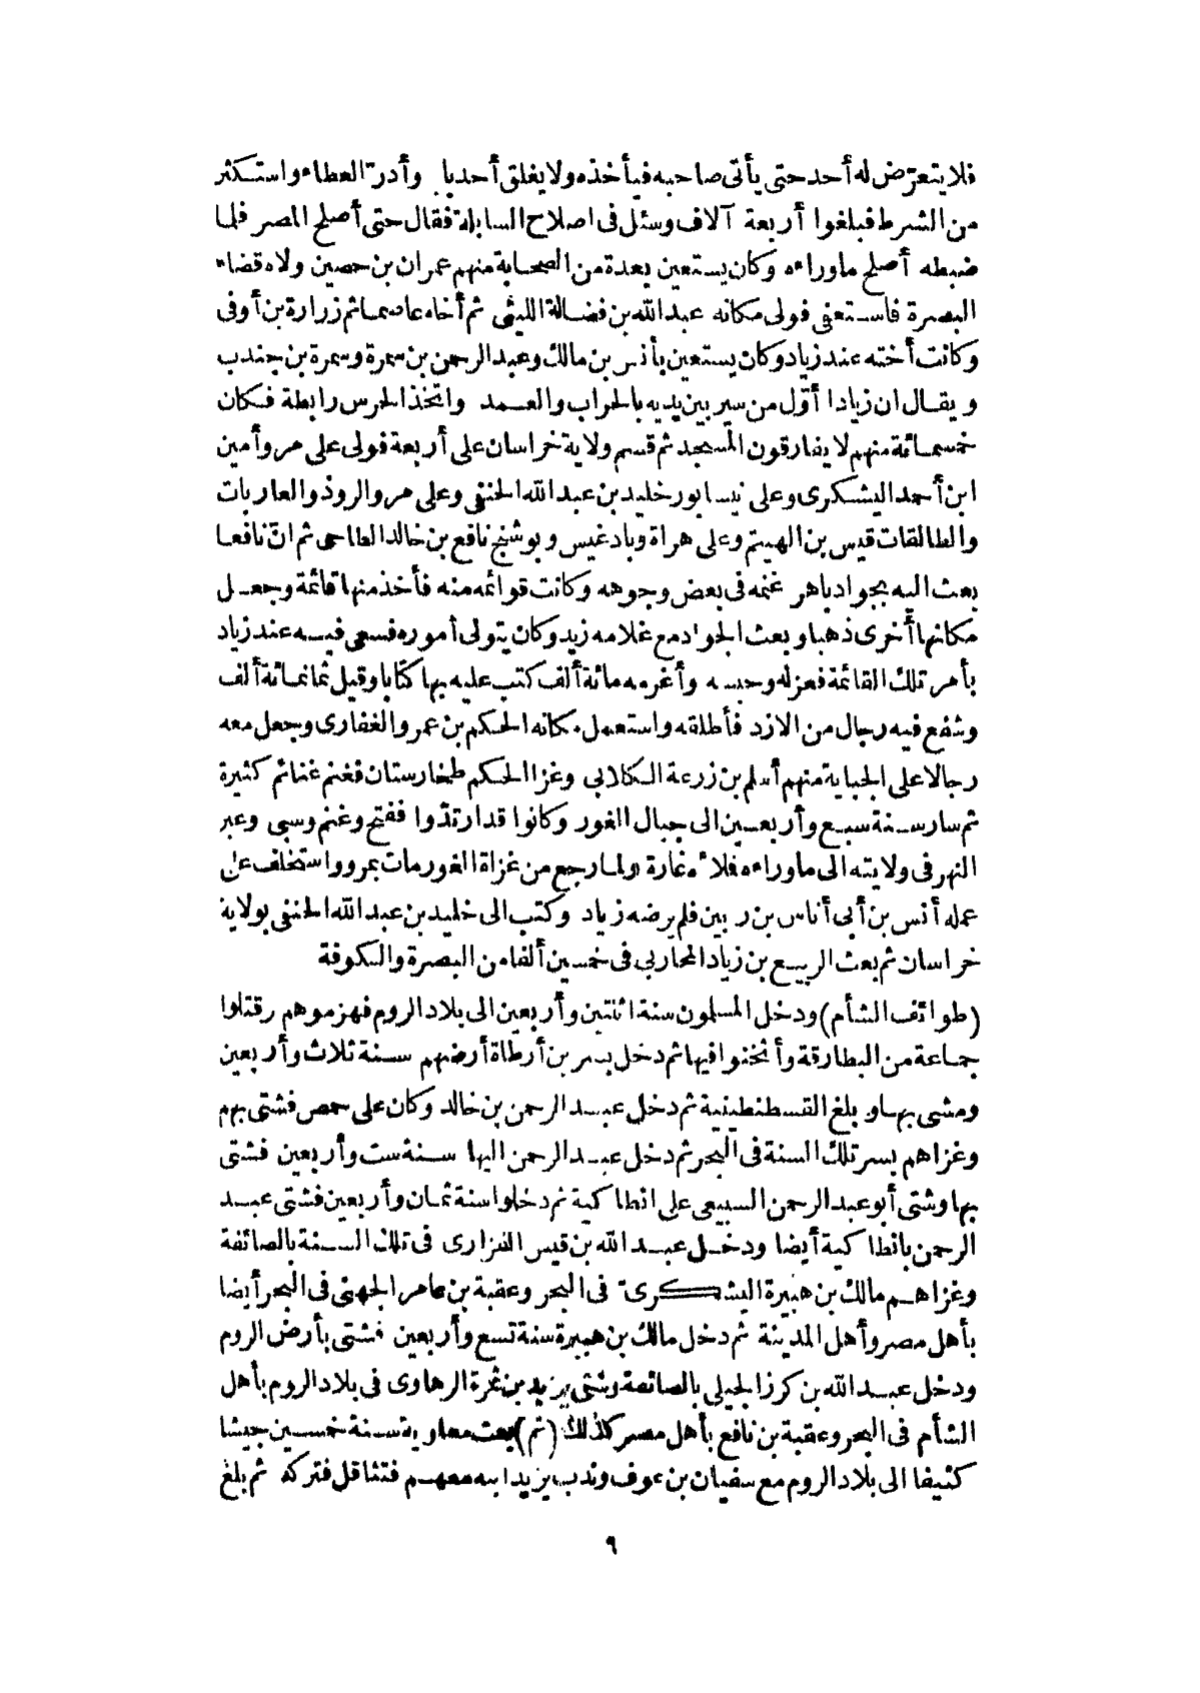 فلا يتعرّض له أحد حتى يأتى صاحبه فيأخذه ولا يغلق أحد با وأدرّ العطاء واستكثر
من الشرط فبلغوا أربعة آلاف وسئل فى اصلاح السابلة فقال حتى أصلح المصر فلما
ضبطه أصلح ما وراءه وكان يستعين بعدة من الصحابة منهم عمران بن حصين ولاه قضاء
البصرة فاستعفى فولى مكانه عبد الله بن فضالة الليثى ثم أخاه عاصما ثم زرارة بن أوفى
وكانت أخته عند زياد وكان يستعين بأنس بن مالك وعبد الرحمن بن سمرة وسمرة بن جندب
ويقال ان زيادا أوّل من سير بين يديه بالحراب والعمد واتخذ الحرس رابطة فكان
خمسمائة منهم لا يفارقون المسجد ثم قسم ولاية خراسان على أربعة فولى على مرو أمين
ابن أحمد اليشكرى وعلى نيسابور خليد بن عبد الله الحنفى وعلى مرو الروذ والعاربات
والطالقات قيس بن الهيثم وعلى هراة وبادغيس وبوشنج نافع بن خالد الطاحى ثم انّ نافعا
بعث اليه بجواد باهر غنمه فى بعض وجوهه وكانت قوائمه منه فأخذ منها قائمة وجعل
مكانها أخرى ذهبا وبعث الجواد مع غلامه زيد وكان يتولى أموره فسعى فيه عند زياد
بأمر تلك القائمة فعزله وحبسه وأغرمه مائة ألف كتب عليه بها كتابا وقيل ثمانمائة ألف
وشفع فيه رجال من الازد فأطلقه واستعمل مكانه الحكم بن عمرو الغفارى وجعل معه
رجالا على الجباية منهم أسلم بن زرعة الكلابى وغزا الحكم طخارستان فغنم غنائم كثيرة
ثم سار سنة سبع وأربعين الى جبال الغور وكانوا قد ارتدّوا ففتح وغنم وسبى وعبر
النهر فى ولايته الى ما وراءه فلأه غارة ولما رجع من غزاة الغور مات بمرو واستخلف على
عمله أنس بن أبى أناس بن ربين فلم يرضه زياد وكتب الى خليد بن عبد الله الحنفى بولاية
خراسان ثم بعث الربيع بن زياد المحاربى فى خمسين ألفا من البصرة والكوفة
(طوائف الشأم) ودخل المسلمون سنة اثنتين وأربعين الى بلاد الروم فهزموهم وقتلوا
جماعة من البطارقة وأثخنوا فيها ثم دخل بسر بن أرطاة أرضهم سنة ثلاث وأربعين
ومشى بها وبلغ القسطنطينية ثم دخل عبد الرحمن بن خالد وكان على حمص فشتى بهم
وغزاهم بسر تلك السنة فى البحر ثم دخل عبد الرحمن اليها سنة ست وأربعين فشتى
بها وشتى أبو عبد الرحمن السبيعى على انطاكية ثم دخلوا سنة ثمان وأربعين فشتى عبد
الرحمن بانطاكية أيضا ودخل عبد الله بن قيس الفزارى فى تلك السنة بالصائفة
وغزاهم مالك بن هبيرة اليشكرىّ فى البحر وعقبة بن عامر الجهنى فى البحر أيضا
بأهل مصر وأهل المدينة ثم دخل مالك بن هبيرة سنة تسع وأربعين فشتى بأرض الروم
ودخل عبد الله بن كرز الجيلى بالصائفة وشتى يزيد بن ثمرة الرهاوى فى بلاد الروم بأهل
الشأم فى البحر وعقبة بن نافع بأهل مصر كذلك (ثم) بعث معاوية سنة خمسين جيشا
كثيفا الى بلاد الروم مع سفيان بن عوف وندب يزيد ابنه معهم فتثاقل فتركه ثم بلغ
٩